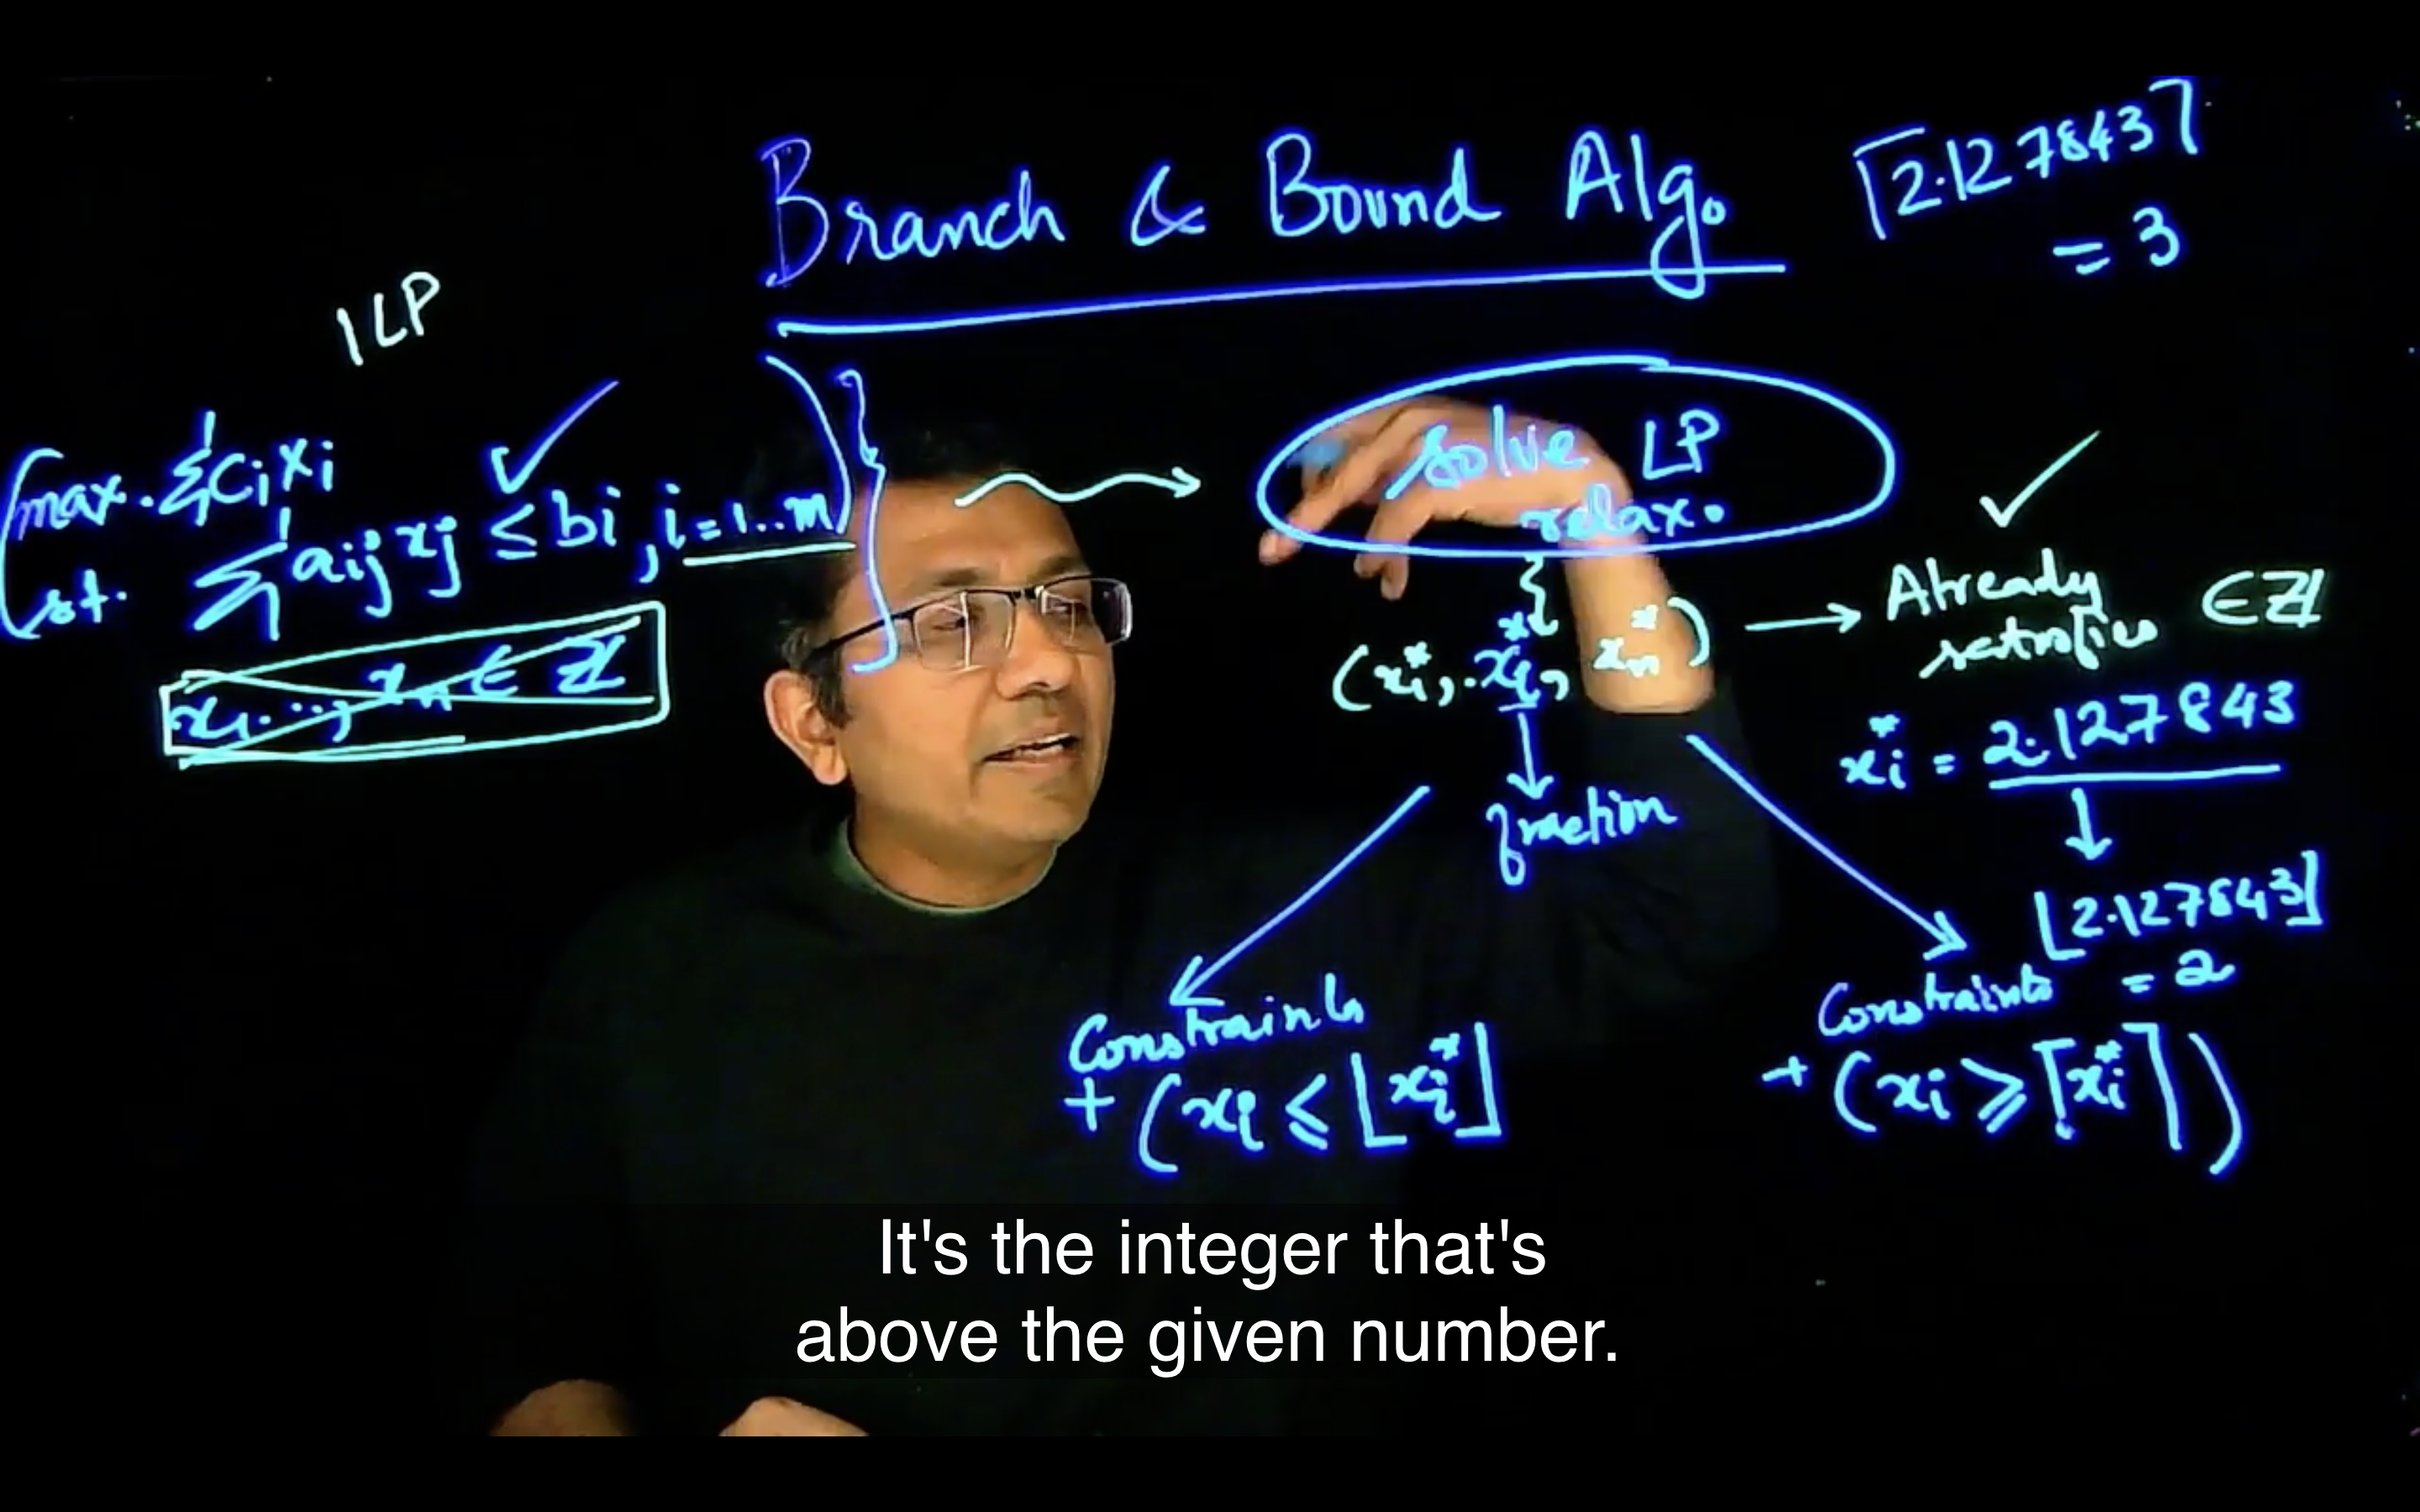 Branch & Bound Alg.
⌈2.127843⌉
= 3
ILP
max. Σ cᵢxᵢ
st. Σ aᵢⱼ xⱼ ≤ bᵢ, i=1..m
x₁..., xₙ ∈ ℤ
solve LP
relax.
(x₁*, .xᵢ*, xₙ*) → Already
satisfies ∈ ℤ
fraction
xᵢ* = 2.127843
⌊2.127843⌋
= 2
Constraints
+ (xᵢ ≤ ⌊xᵢ*⌋
Constraints
+ (xᵢ ≥ ⌈xᵢ*⌉)
It's the integer that's
above the given number.